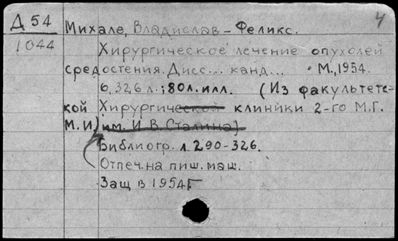 Д 54
1044
4
Михале, Владислав-Феликс.
Хирургическое лечение опухолей
средостения. Дисс... канд... М., 1954.
6, 326 л.; 80 л. илл. (Из факультетс-
кой Хирургической клиники 2-го М.Г.
М.И. им. И.В. Сталина)
Библиогр. л. 290-326.
Отпеч. на пиш. маш.
Защ в 1954 г